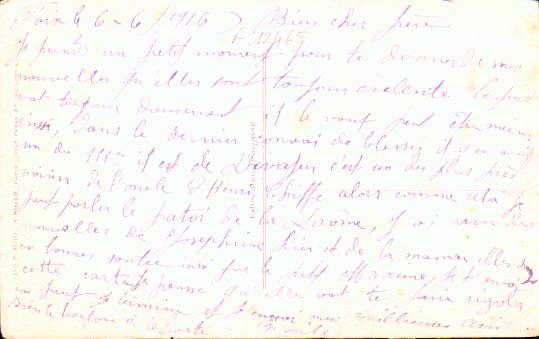 Foix le 6-6/1916 Bien cher frère
F.12465
Je prends un petit moment pour te donner de mes
nouvelles qu'elles sont toujour exelente le pied
vat toujour doucement il le vaut peut être mieux
insi, dans le dernier convoi de blessés il y en avait
un du 111e il est de c'est un des plus près
voisin de l'oncle d'Henri alors comme cela
peut parler le patois de la Drome, j'ai reçu des
nouvelles de Josephine et de la maman elles sont
en bonne santée insi que le petit je t'envoi
cette carte je pense qu'elle vat te faire rigoler
un peut je termine et t'envoi mes meilleures amitiés
bien le bonjour à